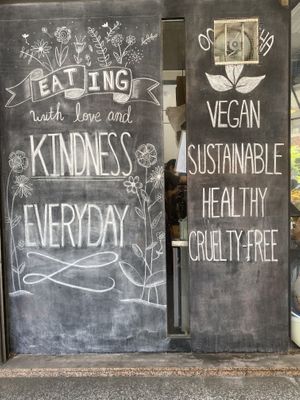 EATING
with love and
KINDNESS
EVERYDAY
VEGAN
SUSTAINABLE
HEALTHY
CRUELTY-FREE